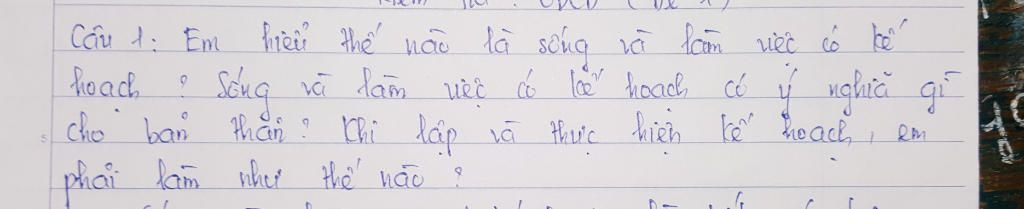 Câu 1: Em hiểu thế nào là sống và làm việc có kế
hoạch? Sống và làm việc có kế hoạch có ý nghĩa gì
cho bản thân? Khi lập và thực hiện kế hoạch, em
phải làm như thế nào?